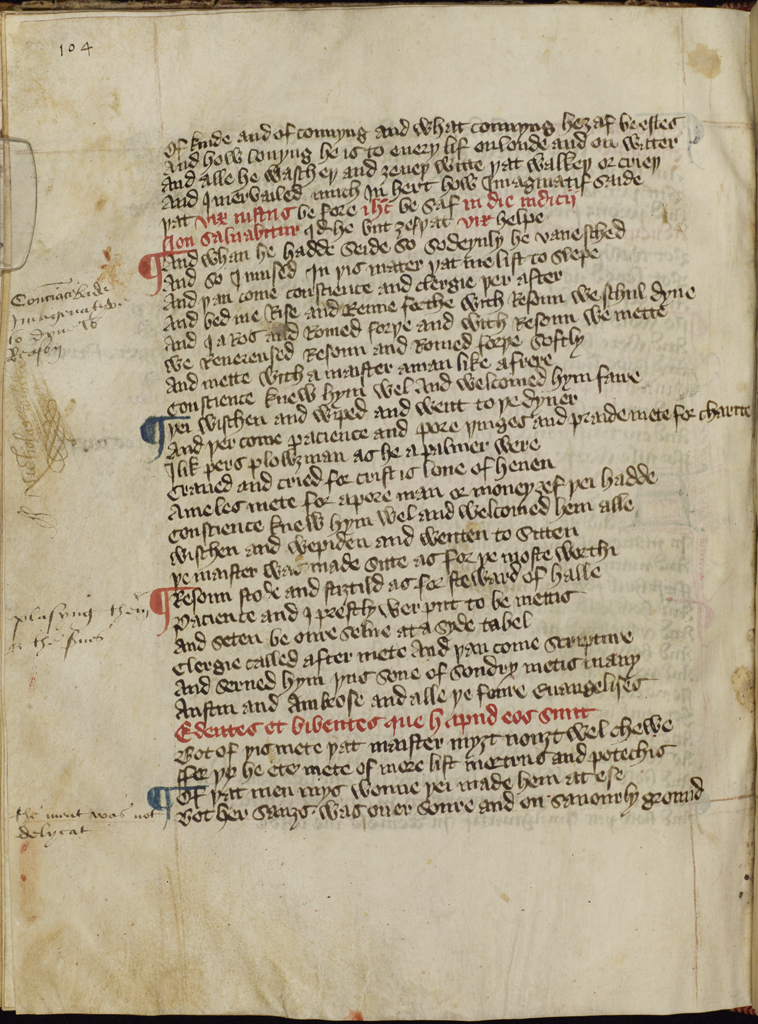 104
Of kinde and of connyng and what connyng he ȝaf bestes
And how louyng he is to euery lif on londe and on water
And alle he waschey and ȝeuey witte yat walkey or criey
And I mervailed much in hert how Imaginatif saide
yat vix iustus be fore ihc be saf in die iudicii
Non saluabitur qd he but ȝef yat vix helpe
And whan he hadde seide so sodeynly he vanesched
And so I mused In yis mater yat me list to slepe
And yan come conscience and clergie yer after
And bed me Rise and Renne forthe with Resoun we schul dyne
And I aros and Romed forye and with Resoun we mette
We Reuerensed Resoun and Romed forye softly
And mette with a maister a man like a frere
Conscience knew hym wel And welcomed hym faire
yei wischen and wiped and went to ye dyner
And yer come pacience and pore yinges and praide mete for charite
Ilik pers plowȝman as he a palmer were
Craued and cried for crist is loue of heuen
A meles mete for a pore man or money ȝef yei hadde
Conscience knew hym wel and welcomed hem alle
Wischen and wepiden and wenten to sitten
ye maister was made sitte as for ye moste worthi
Resoun stode and stiȝtild as for steward of halle
Pacience and I prestly wer put to be mettis
And seten be oure selue at a syde tabel
Clergie called after mete And yan come scripture
And serued hym yus sone of sondry metis many
Austin and Ambrose and alle ye foure Euangelistes
Edentes et bibentes que apud eos sunt
Bot of yis mete yat maister myȝt nouȝt wel chewe
ffor yy he ete mete of more lift mortrus and potechis
Of yat men mys wonne yei made hem at ese
Bot her saus was ouer soure and on sauourly ground
Imaginative
to dyne
Reason
the meat was not
delycat